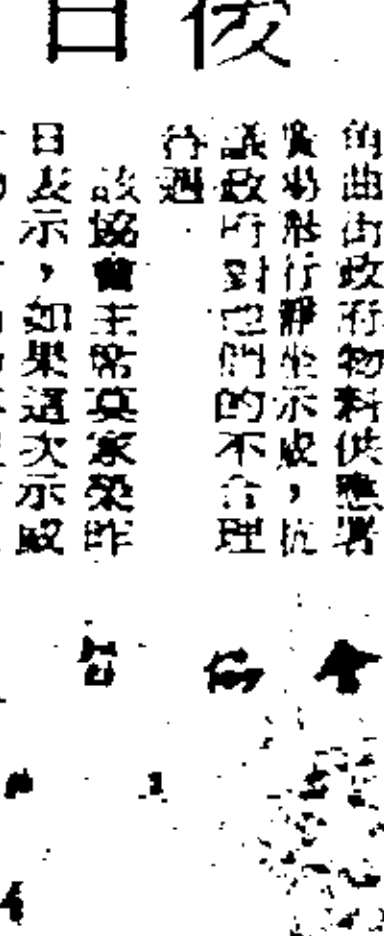 日
的油街政府物料供應署
廣場進行靜坐示威，抗
議政府對他們的不合理
待遇
該協會主席莫家榮昨
日表示，如果這次示威